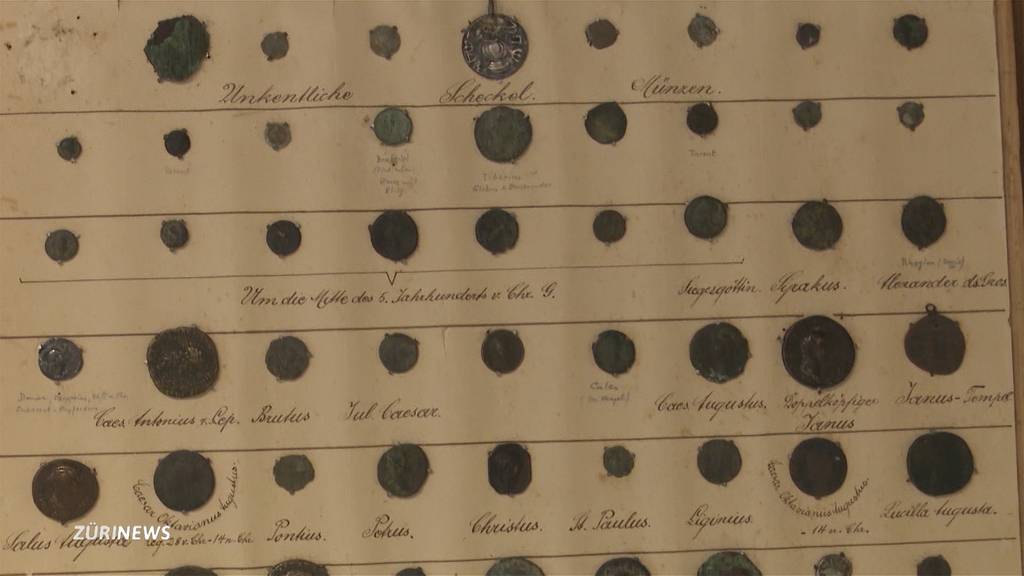 Unkentliche Scheckel. Münzen.
Tarent
Tiberius
Um die Mitte des 5. Jahrhunderts v. Chr. G. Siegesgöttin. Syrakus. Alexander ds. Gros
Caes Antonius v. Lep. Brutus Jul. Caesar. Caes Augustus. Doppelköpfiger Janus-Tempel
Janus
Caesar Octavianus Augustus. Caesar Octavianus Augustus.
Salus Augusta Pontius. Petrus. Christus. St. Paulus. Liginius. - 14 n. Chr. Lucilla Augusta.
ZÜRINEWS